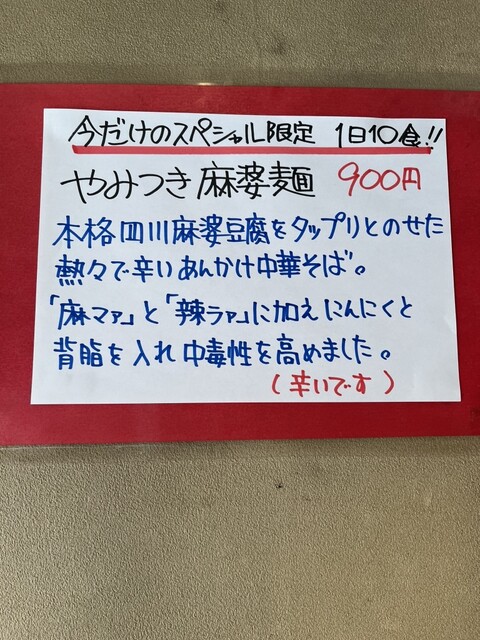 今だけのスペシャル限定 1日10食!!
やみつき麻婆麺 900円
本格四川麻婆豆腐をタップリとのせた
熱々で辛いあんかけ中華そば。
「麻マァ」と「辣ラァ」に加えにんにくと
背脂を入れ中毒性を高めました。
(辛いです)